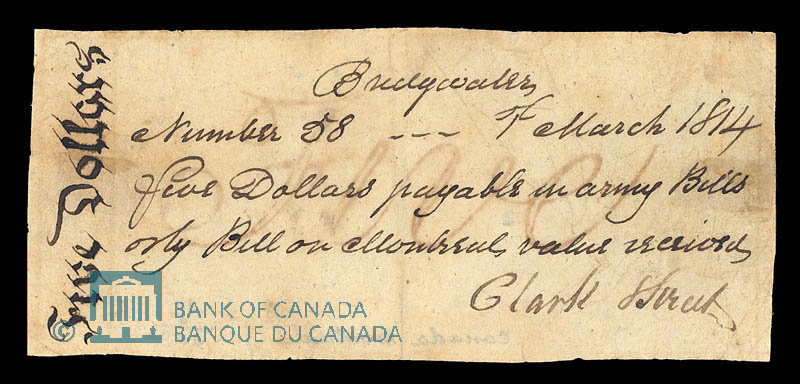 Five Dollars
Bridgwater
Number 58 --- 7 March 1814
five Dollars payable in army Bills
or by Bill on Montreal value received
Clark Street
© BANK OF CANADA
BANQUE DU CANADA